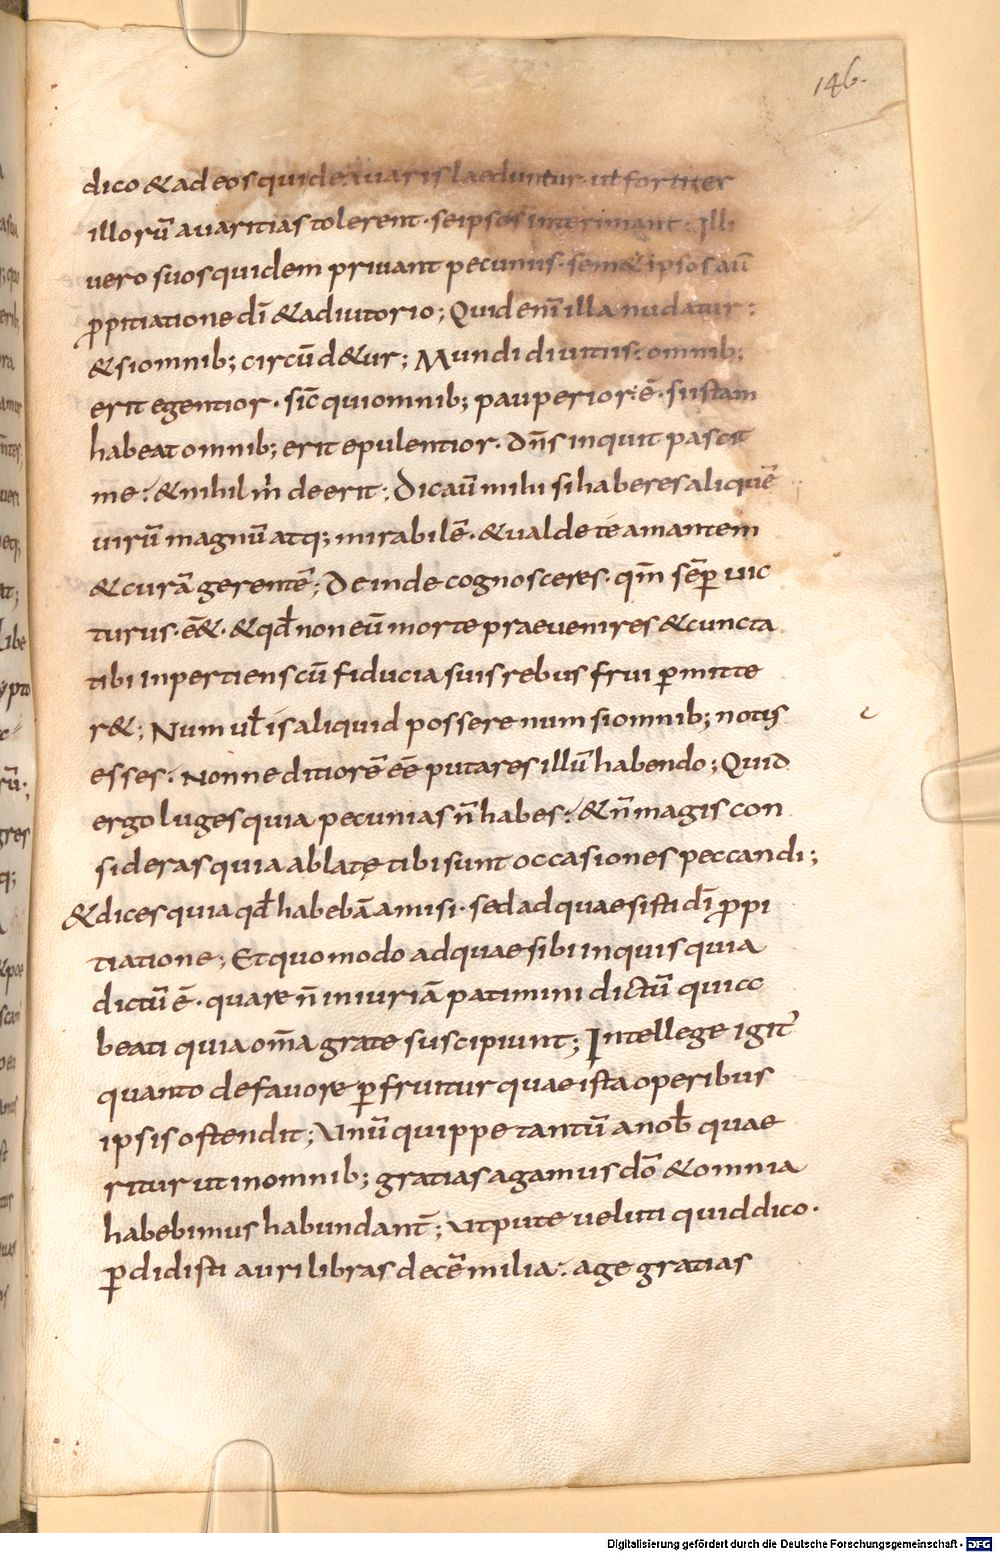 146.
dico & ad eos qui de avaris laeduntur. ut fortiter
illorū avaritias tolerent. se ipsos interimant: Illi
vero suos quidem privant pecuniis. sem& ipsos aū
ꝓpitiatione dī & adiutorio; Quid enī illa nudatur:
& si omnib; circūd&ur; Mundi divitiis: omnib;
erit egentior. sic̄ qui omnib; pauperior ē. si istam
habeat omnib; erit epulentior. dn̄s inquit pascit
me: & nihil m̄ deerit; Dic aū mihi si haberes aliquē
virū magnū atq; mirabilē. & valde te amantem
& curā gerentē; Deinde cognosceres. qm̄ sēp vic
turus. ē&. & qd̄ non eū morte praevenires & cuncta
tibi inpertiens cū fiducia suis rebus frui ꝑmitte
r&; Num ul̄ is aliquid possere num si omnib; notis
esses. Nonne ditiorē eē putares illū habendo; Quid
ergo luges quia pecunias n̄ habes: & n̄ magis con
sideras quia ablatę tibi sunt occasiones peccandi;
& dices quia qd̄ habebā amisi. sed adquaesisti dī ꝓpi
tiatione; Et quomodo adquaesibi inquis quia
dictū ē. quare n̄ iniuriā patimini dictū quicc
beati quia om̄a grate suscipiunt; Intellege igit̄
quanto de favore ꝑfruitur quae ista operibus
ipsis ostendit; Unū quippe tantū a nob̄ quae
ritur ut in omnib; gratias agamus dō & omnia
habebimus habundant̄; Ut pute veluti quid dico.
ꝑdidisti auri libras decē milia. age gratias
Digitalisierung gefördert durch die Deutsche Forschungsgemeinschaft - DFG